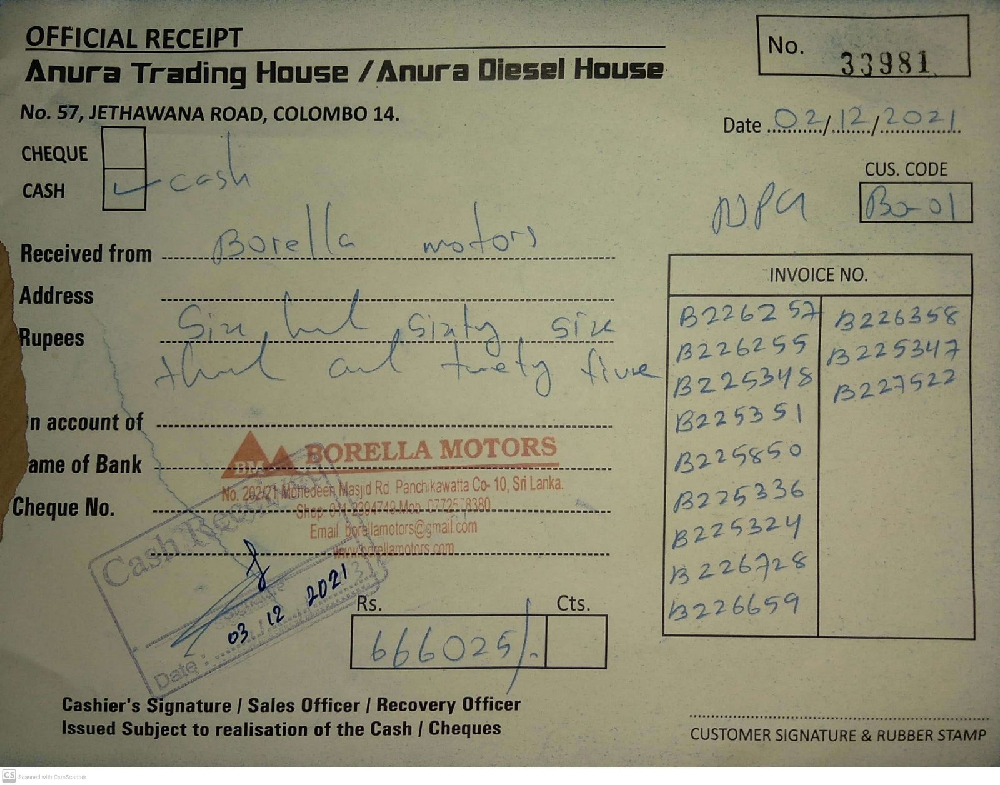 OFFICIAL RECEIPT
Anura Trading House / Anura Diesel House
No. 57, JETHAWANA ROAD, COLOMBO 14.
No. 33981
Date 02/12/2021
CHEQUE
CASH cash
CUS. CODE
NPG Bo-01
Received from Borella motors
Address
Rupees Six hud sixty six
thud and twety five
In account of
ame of Bank
Cheque No.
INVOICE NO.
B226257 B226358
B226255 B225347
B225348 B227522
B225351
B225850
B225336
B225324
B226728
B226659
BM BORELLA MOTORS
No. 202/21 Mohedeen Masjid Rd. Panchikawatta Co- 10, Sri Lanka.
Email: borellamotors@gmail.com
www.borellamotors.com
Cash Received
03 12 2021
Date :
Rs. Cts.
666025/-
Cashier's Signature / Sales Officer / Recovery Officer
Issued Subject to realisation of the Cash / Cheques
CUSTOMER SIGNATURE & RUBBER STAMP
CS Scanned with CamScanner